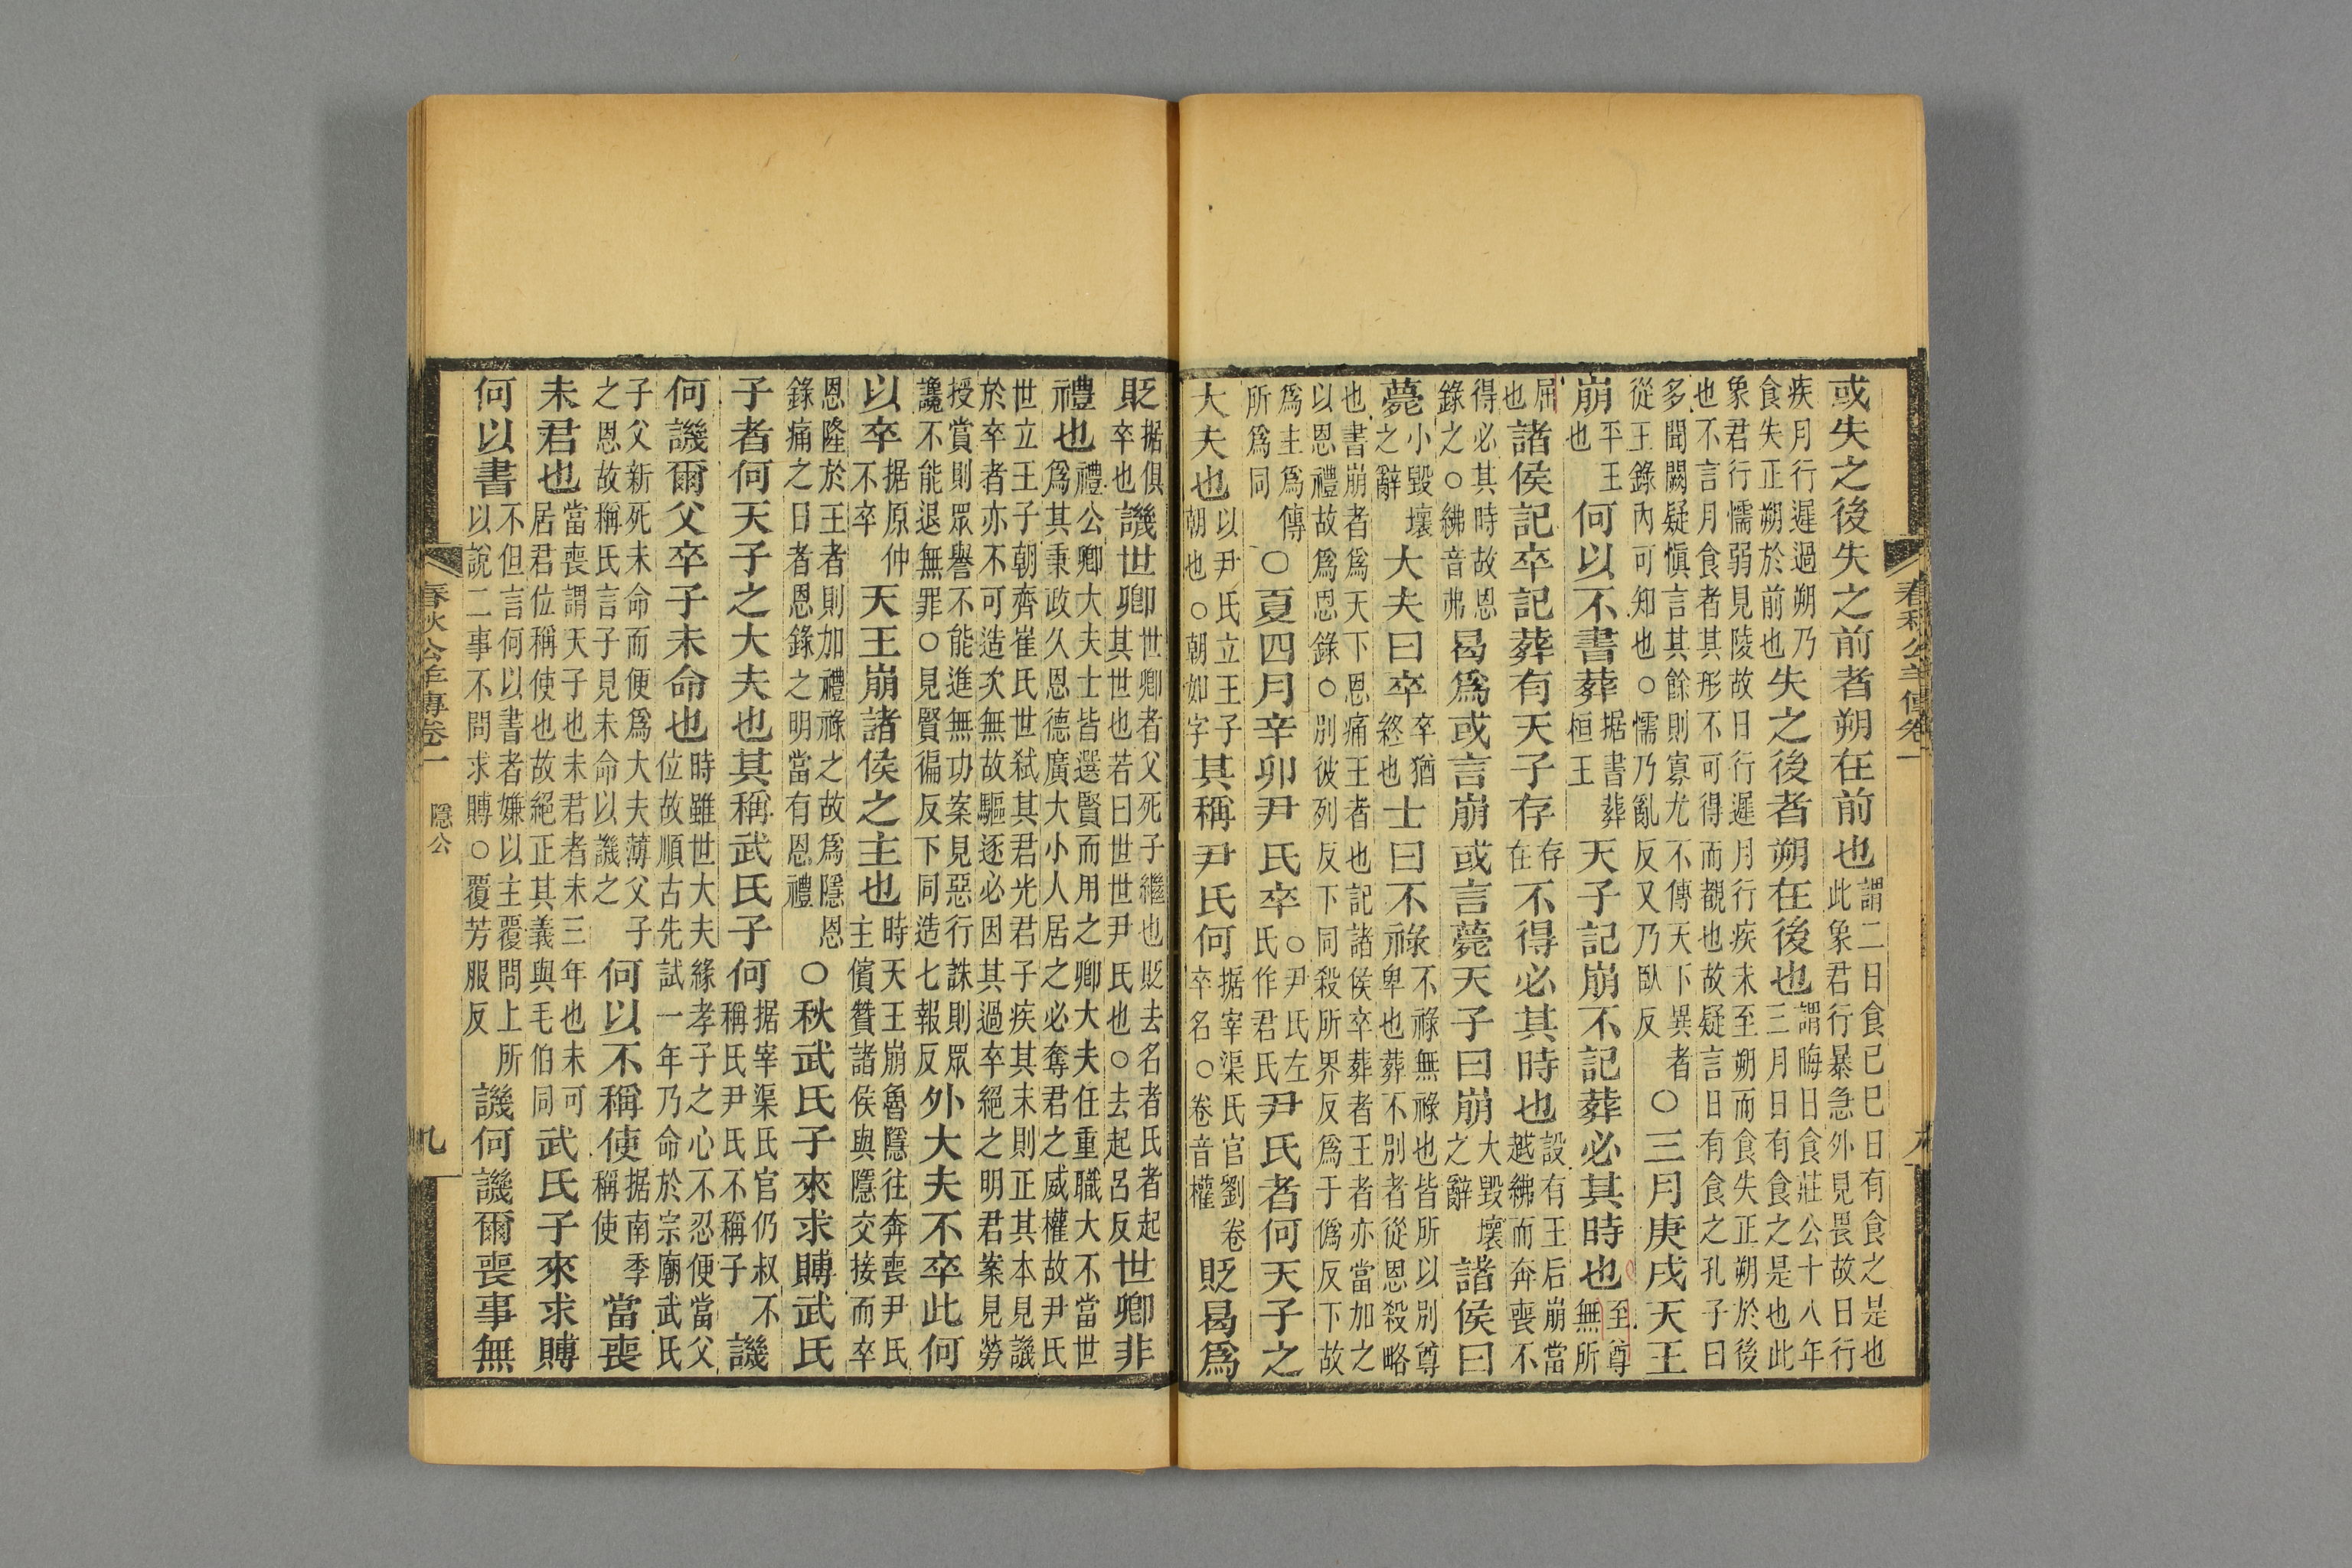 春秋公羊傳卷一
或失之後失之前者朔在前也謂二日食己巳日有食之是也此象君行暴急外見畏故日行
疾月行遲過朔乃食失正朔於前也失之後者朔在後也謂晦日食莊公十八年三月日有食之是也此
象君行懦弱見陵故日行遲月行疾未至朔而食失正朔於後也不言月食者其形不可得而覩也故疑言日有食之孔子曰
多聞闕疑慎言其餘則寡尤不傳天下異者從王錄內可知也○懦乃亂反又乃臥反○三月庚戌天王
崩平王也何以不書葬据書葬桓王天子記崩不記葬必其時也至尊無所
屈也諸侯記卒記葬有天子存存在不得必其時也設有王后崩當越紼而奔喪不
得必其時故恩錄之○紼音弗曷爲或言崩或言薨天子曰崩大毀壞之辭諸侯曰
薨小毀壞之辭大夫曰卒卒猶終也士曰不祿不祿無祿也皆所以別尊卑也葬不別者從恩殺略
也書崩者爲天下恩痛王者也記諸侯卒葬者王者亦當加之以恩禮故爲恩錄○別彼列反下同殺所界反爲于僞反下故
爲主爲傳所爲同○夏四月辛卯尹氏卒○尹氏左氏作君氏尹氏者何天子之
大夫也以尹氏立王子朝也○朝如字其稱尹氏何据宰渠氏官劉卷卒名○卷音權貶曷爲
貶据俱卒也譏世卿世卿者父死子繼也貶去名者氏者起其世也若曰世世尹氏也○去起呂反世卿非
禮也禮公卿大夫士皆選賢而用之卿大夫任重職大不當世爲其秉政久恩德廣大小人居之必奪君之威權故尹氏
世立王子朝齊崔氏世弒其君光君子疾其末則正其本見譏於卒者亦不可造次無故驅逐必因其過卒絕之明君案見勞
授賞則眾譽不能進無功案見惡行誅則眾讒不能退無罪○見賢徧反下同造七報反外大夫不卒此何
以卒据原仲不卒天王崩諸侯之主也時天王崩魯隱往奔喪尹氏主儐贊諸侯與隱交接而卒
恩隆於王者則加禮祿之故爲隱恩錄痛之日者恩錄之明當有恩禮○秋武氏子來求賻武氏
子者何天子之大夫也其稱武氏子何据宰渠氏官仍叔不稱氏尹氏不稱子譏
何譏爾父卒子未命也時雖世大夫緣孝子之心不忍便當父位故順古先試一年乃命於宗廟武氏
子父新死未命而便爲大夫薄父子之恩故稱氏言子見未命以譏之何以不稱使据南季稱使當喪
未君也當喪謂天子也未君者未三年也未可居君位稱使也故絕正其義與毛伯同武氏子來求賻
何以書不但言何以書者嫌以主覆問上所以說二事不問求賻○覆芳服反譏何譏爾喪事無
春秋公羊傳卷一 隱公 九